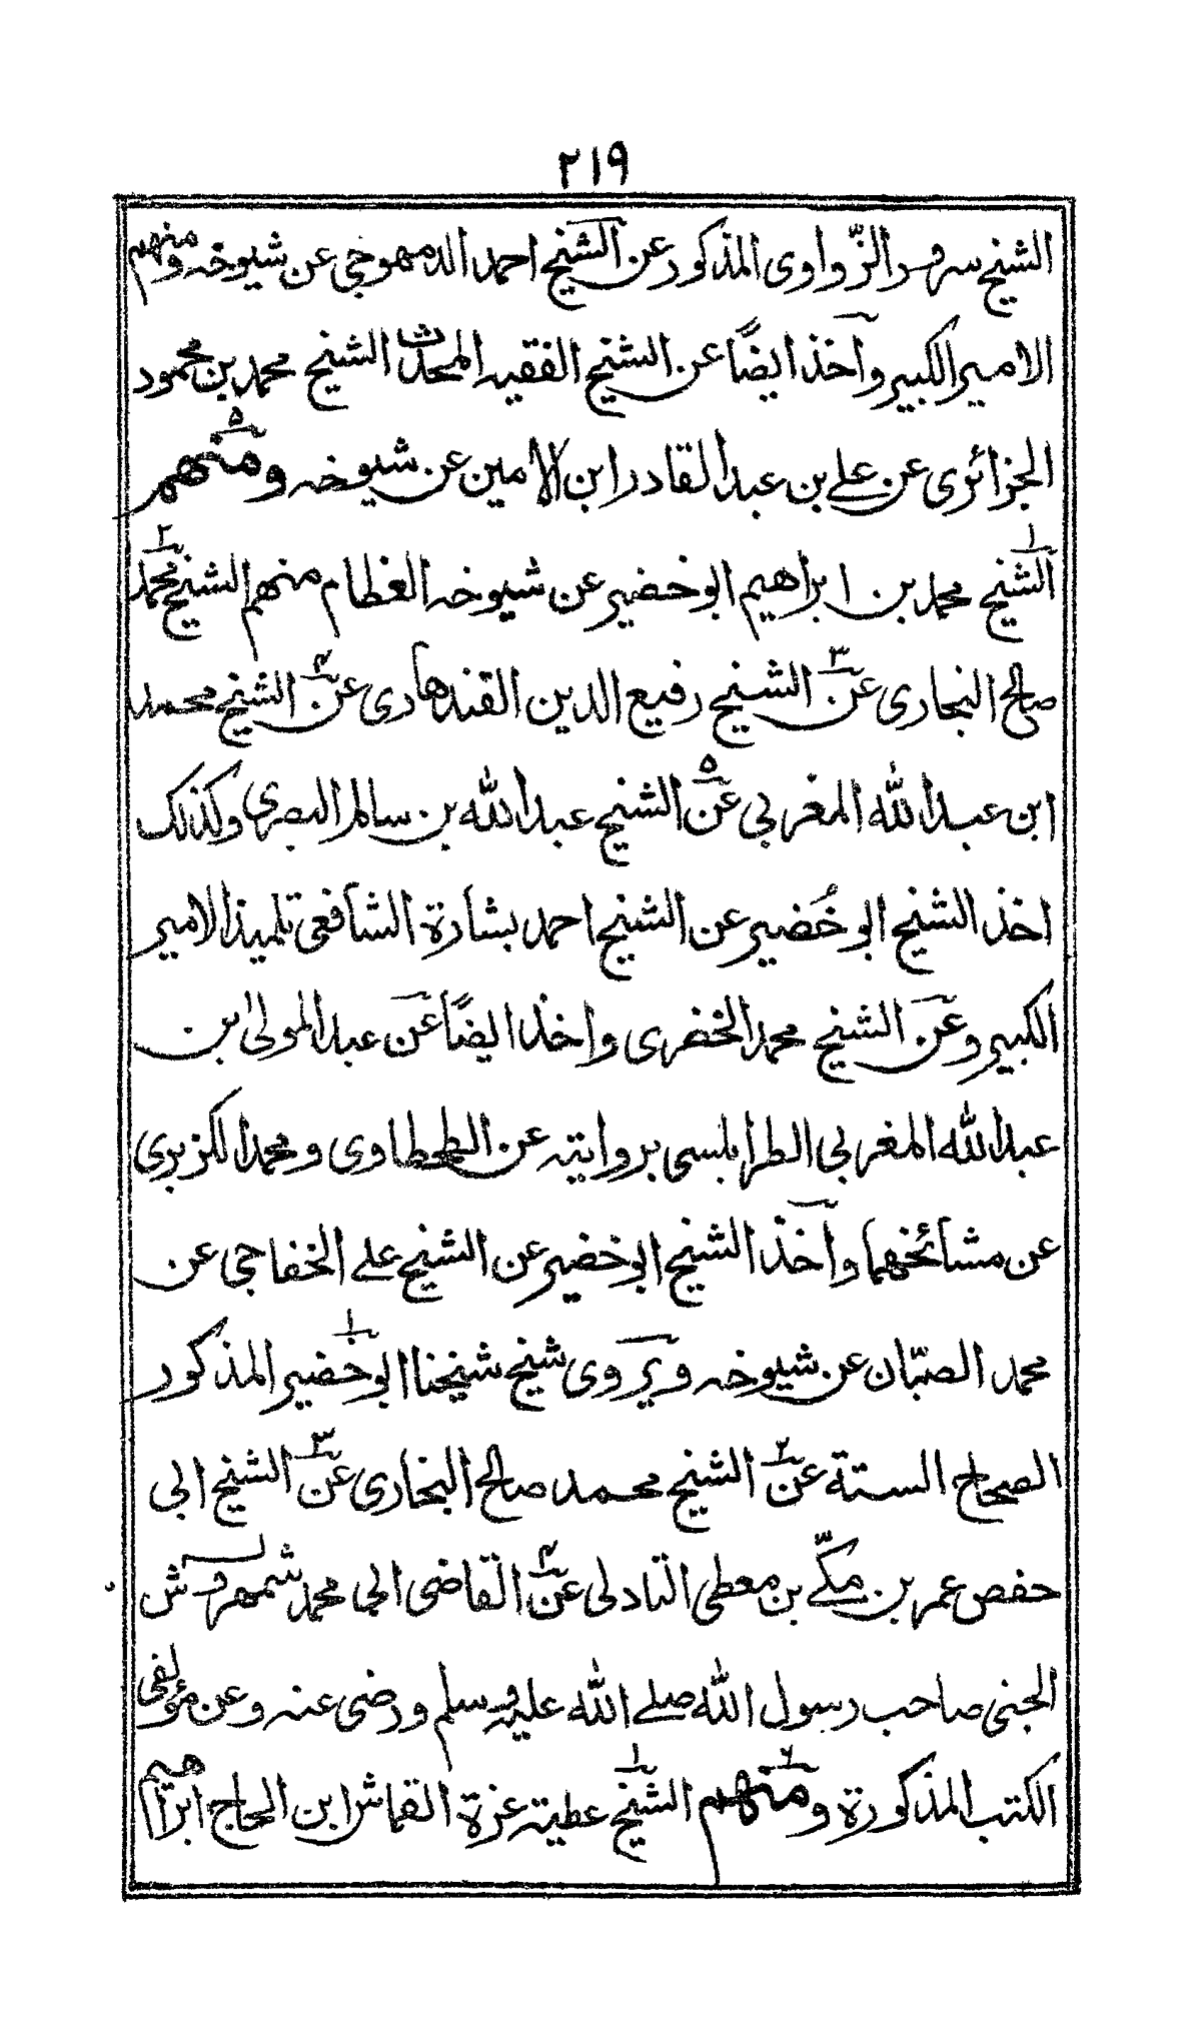 ٢١٩
الشيخ سرور الزّواوى المذكور عن الشيخ احمد الدمهوجي عن شيوخه ومنهم
الامير الكبير وآخذ ايضًا عن الشيخ الفقيه المحدّث الشيخ محمد بن محمود
الجزائرى عن علي بن عبد القادر ابن الامين عن شيوخه ومنهم ٥
الشيخ ١ محمد بن ابراهيم ابو خضير عن شيوخه العظام منهم الشيخ محمد ٢
صالح البخارى عن ٣ الشيخ رفيع الدين القندهارى عن ٤ الشيخ محمد
ابن عبد الله المغربي عن ٥ الشيخ عبد الله بن سالم البصرى وكذلك
اخذ الشيخ ابو خُضير عن الشيخ احمد بشارة الشافعى تلميذ الامير
الكبير وعن الشيخ محمد الخضرى واخذ ايضًا عن عبد المولىٰ بن
عبد الله المغربي الطرابلسى بروايته عن الطحطاوى ومحمد الكزبرى
عن مشائخهما وآخذ الشيخ ابو خضير عن الشيخ علي الخفاجي عن
محمد الصبّان عن شيوخه ويروى شيخ شيخنا ابو خضير ١ المذكور
الصحاح الستة عن ٢ الشيخ محمد صالح البخارى عن ٣ الشيخ ابي
حفص عمر بن مكّي بن معطى التادلى عن ٤ القاضى ابي محمد شمهروش
الجنى صاحب رسول الله صلي الله عليه وسلم ورضى عنه وعن مؤلفى
الكتب المذكورة ومنهم ٦ الشيخ ١ عطية عزة القماش ابن الحاج ابراهيم